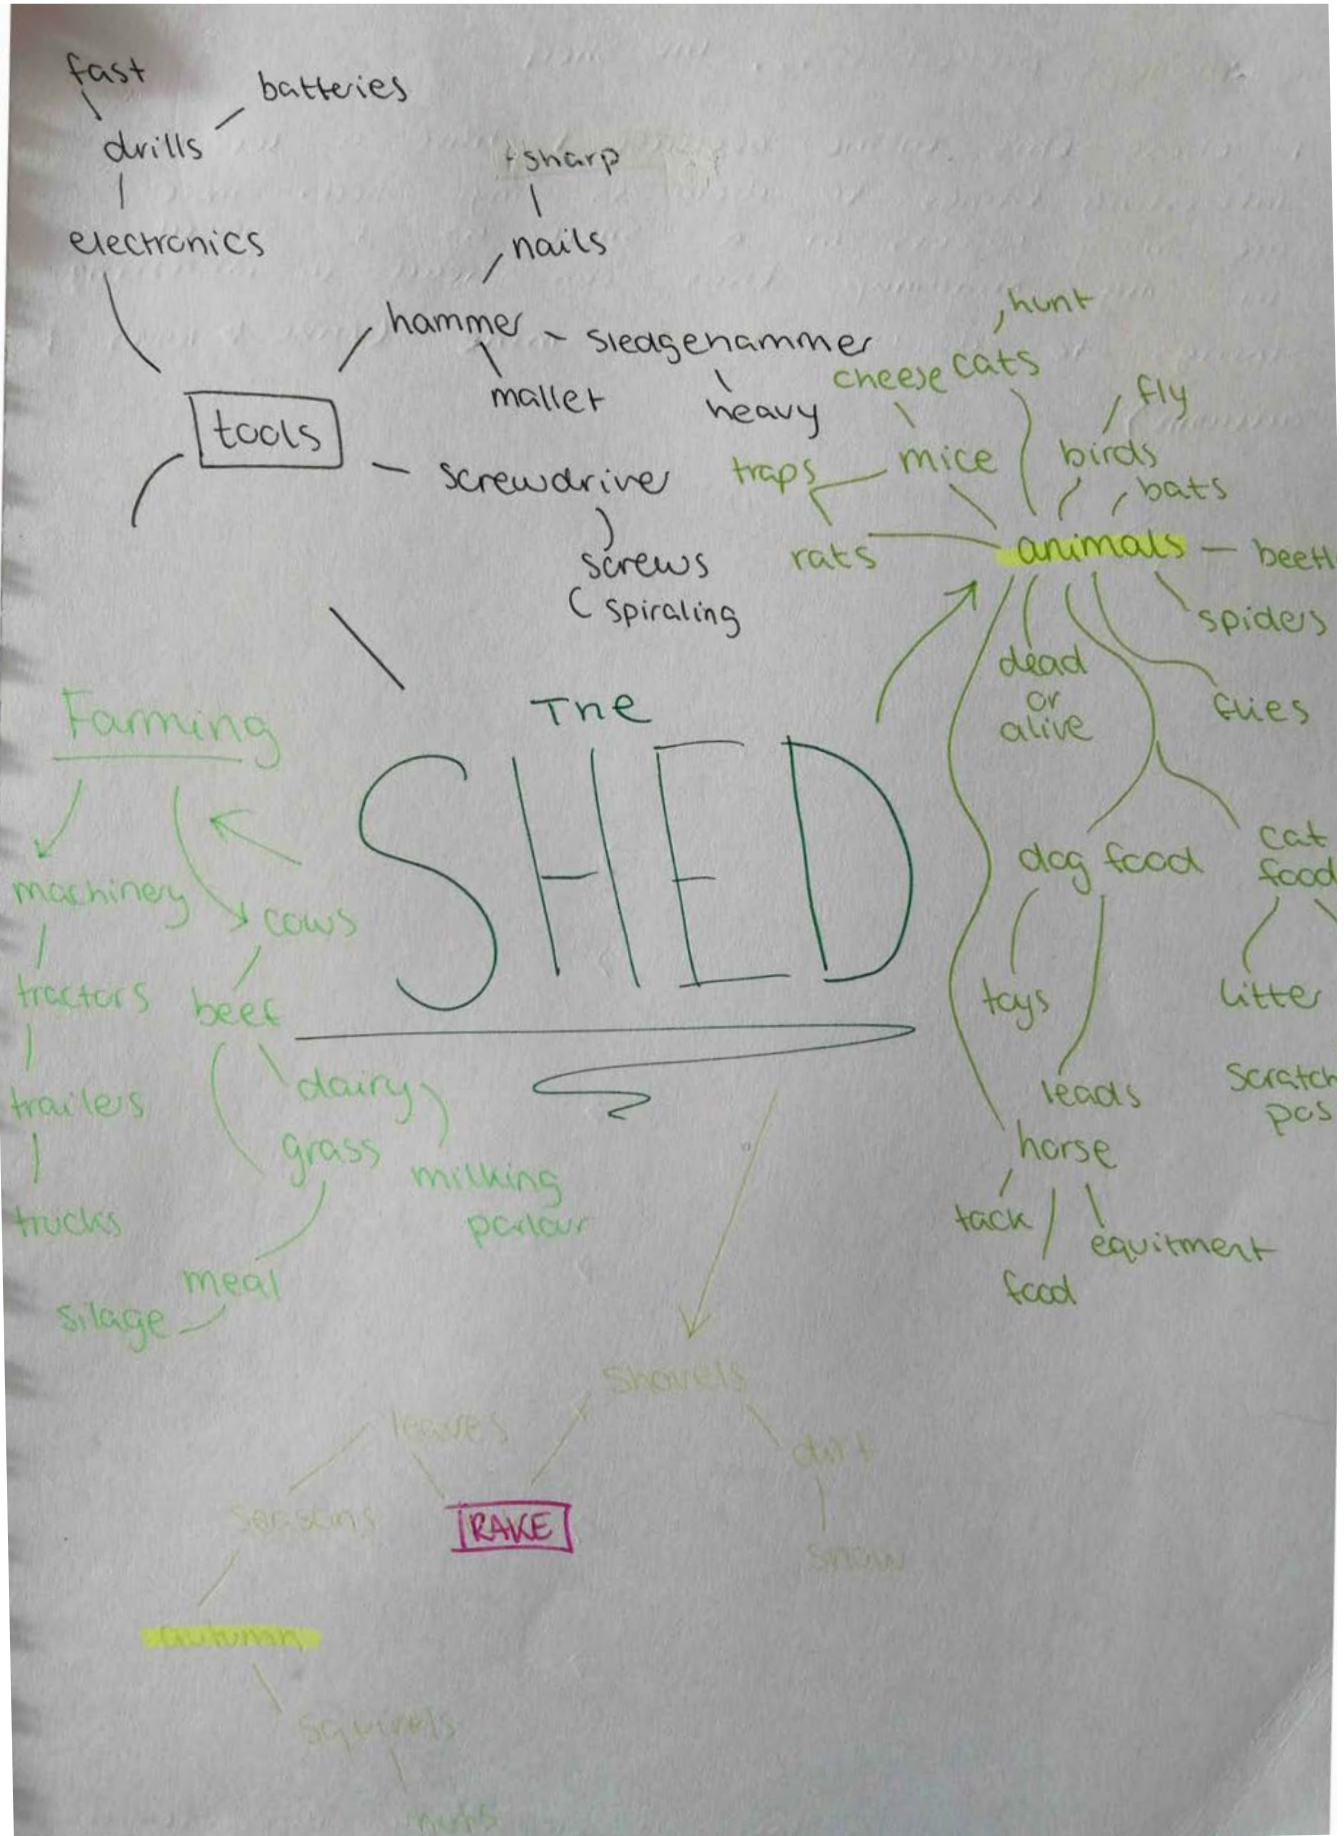 fast
batteries
drills
sharp
electronics
nails
hammer
sledgehammer
mallet
heavy
tools
screwdriver
screws
spiraling
hunt
cheese
cats
fly
traps
mice
birds
bats
rats
animals
spiders
dead
or
alive
flies
dog food
cat
food
toys
litter
leads
horse
tack
equitment
food
The
SHED
Farming
machinery
cows
tractors
beef
trailers
dairy
grass
milking
parlour
trucks
meal
silage
shovels
leaves
dirt
seasons
RAKE
snow
autumn
squirels
nuts